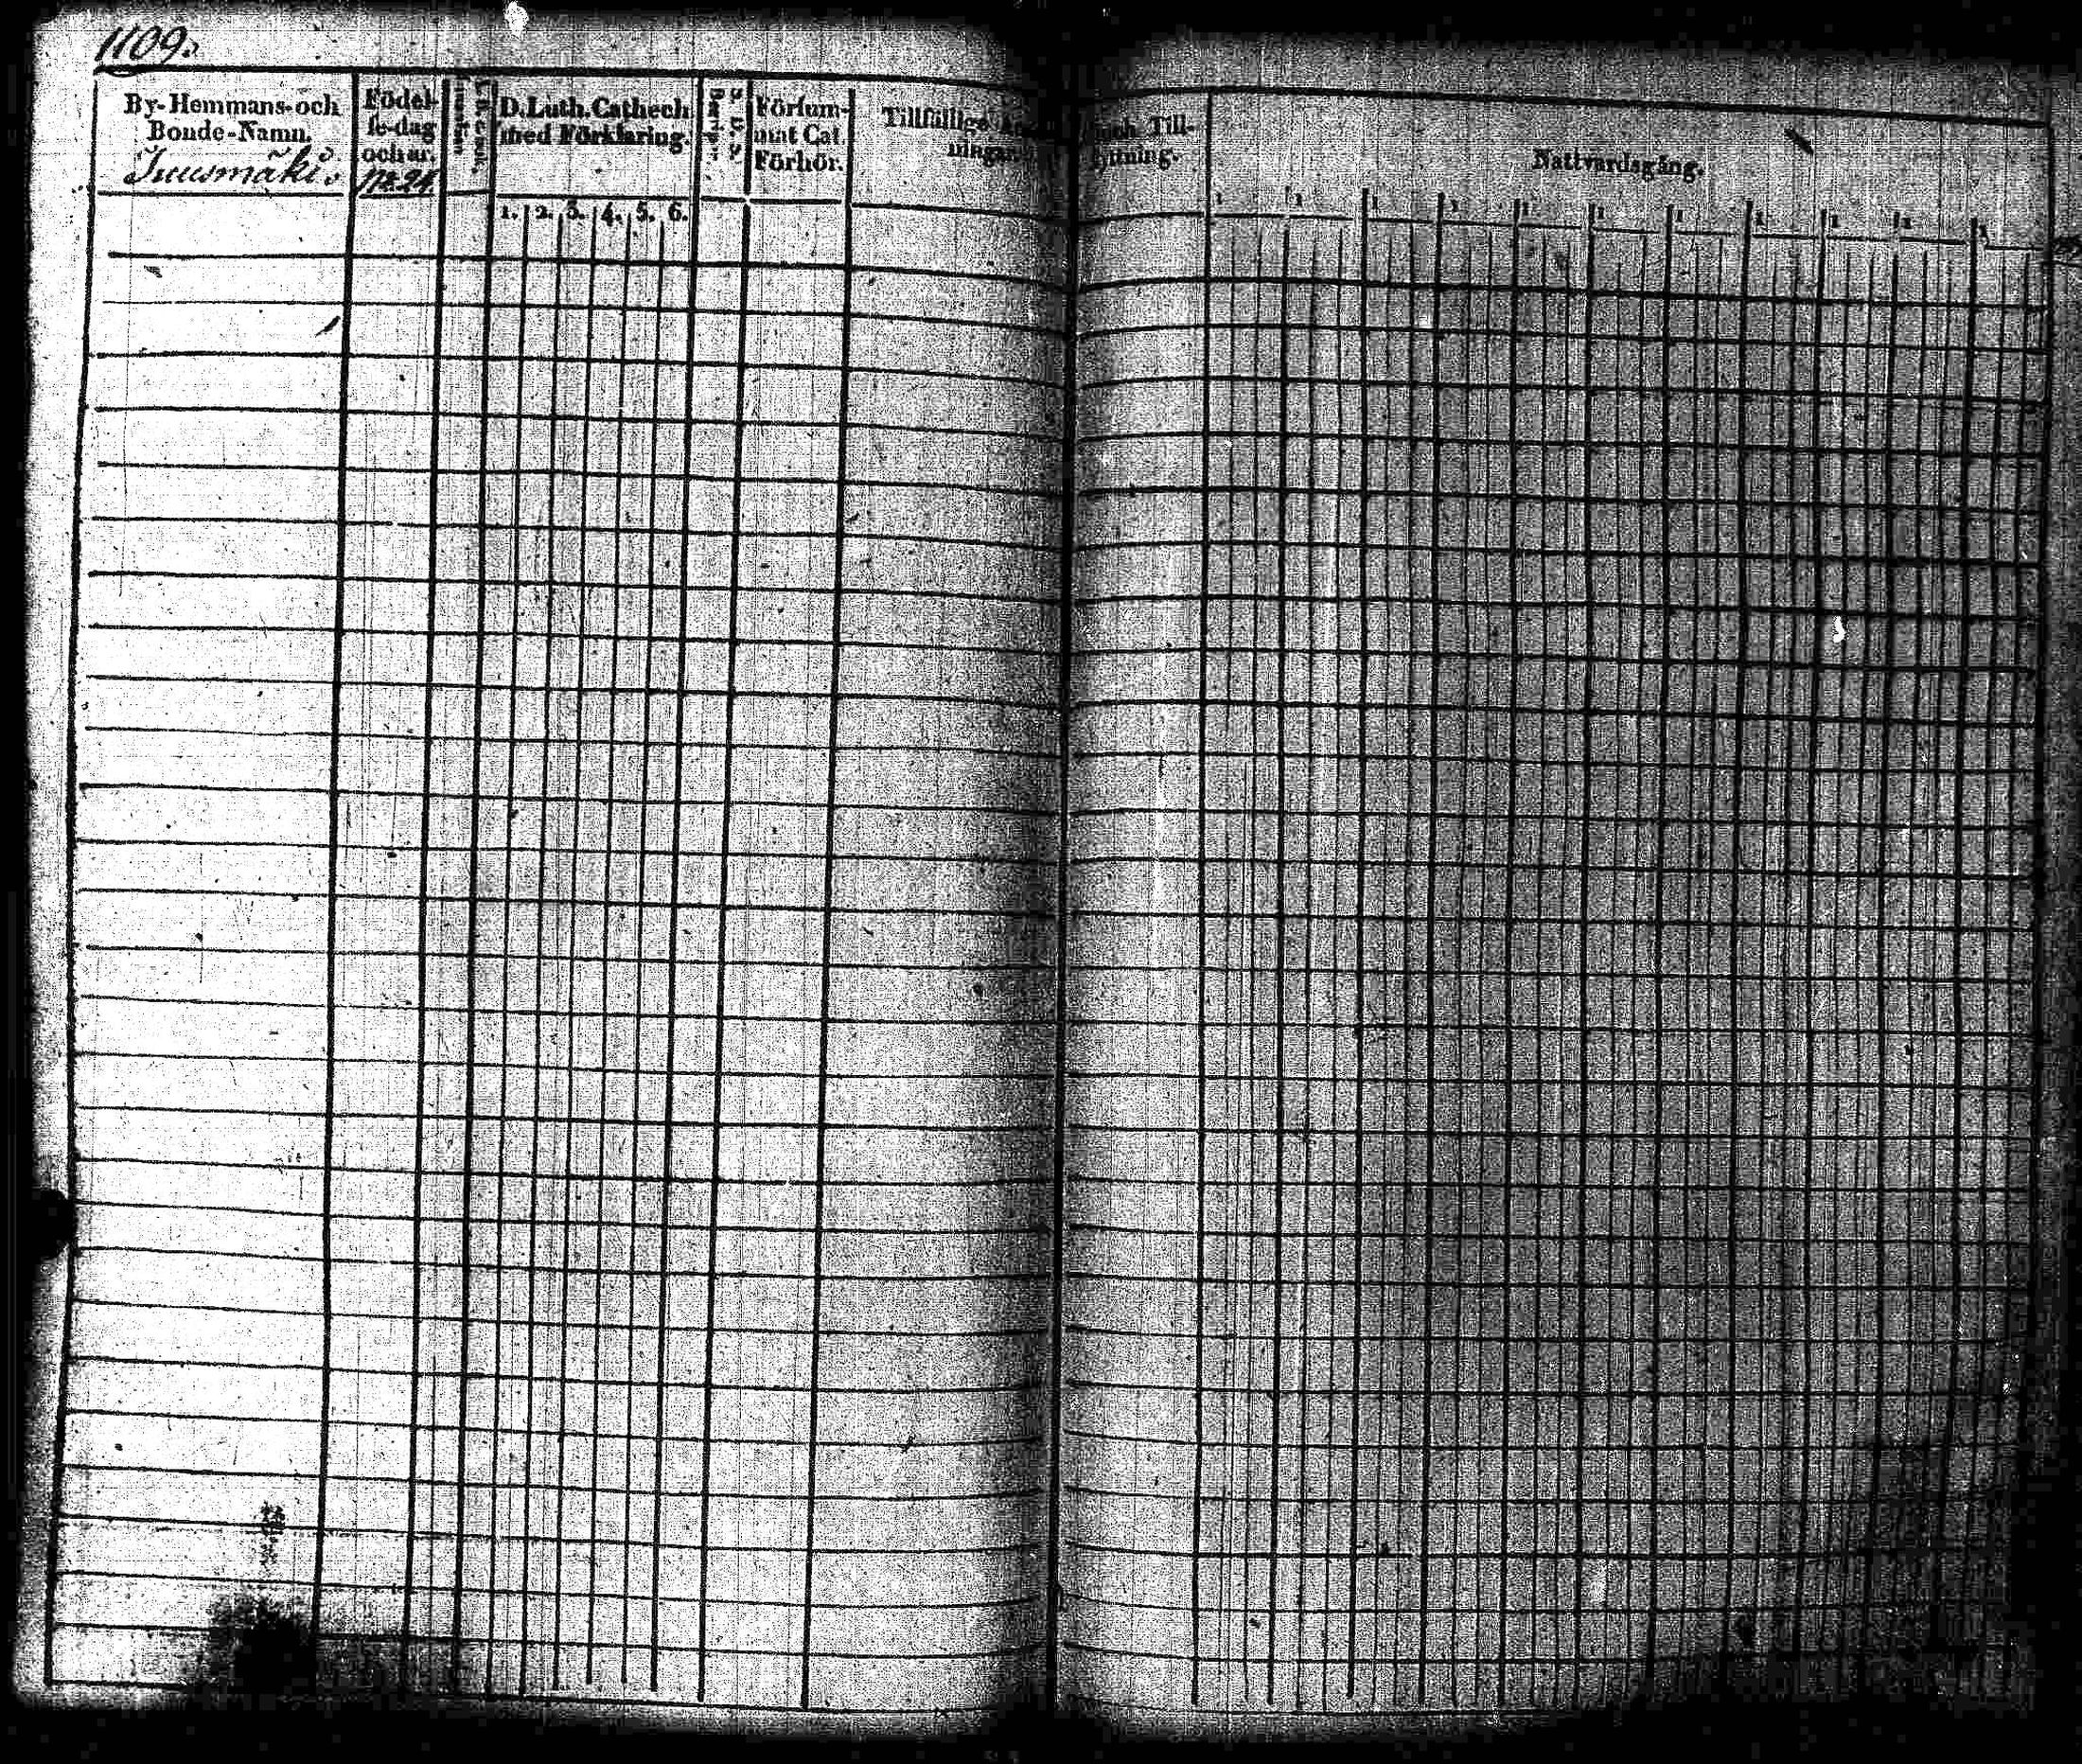 1109.
By-Hemmans-och
Bonde-Namn.
Juusmäki.
Födel-
se-dag
och år.
No 24.
D. Luth. Cathech
med Förklaring.
1. 2. 3. 4. 5. 6.
Försum-
mat Cat.
Förhör.
Tillfällige
och Till-
flyttning.
Nattvardsgång.
1 1 1 1 1 1 1 1 1 1 1